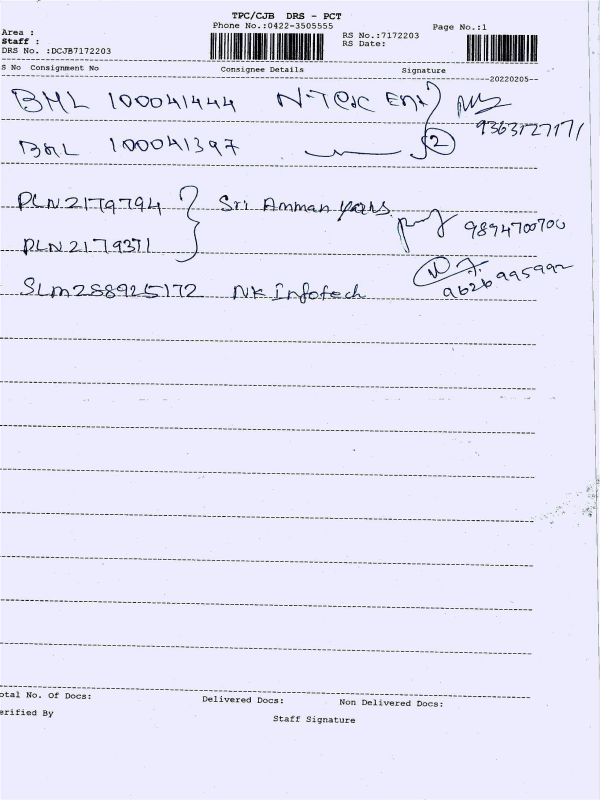 TPC/CJB DRS - PCT
Phone No.:0422-3505555 Page No.:1
Area : RS No.:7172203
Staff : RS Date:
DRS No. :DCJB7172203
S No Consignment No Consignee Details Signature
20220205
BHL 100041444 N-Tek Ent
9363727171
BHL 100041397 2
PLN2179794 Sri Amman
9894700700
PLN2179371
9626995992
SLM288925172 NK Infotech
otal No. of Docs: Delivered Docs: Non Delivered Docs:
erified By Staff Signature